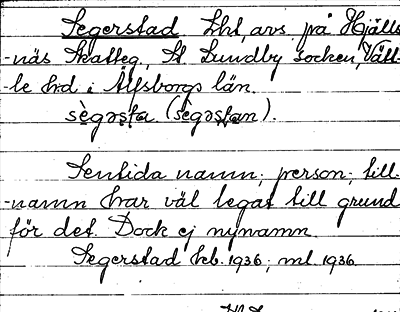 Segerstad Lht, avs. på Hjälls-
-näs Skatteg., St. Lundby socken, Vätt-
-le hd i Älfsborgs län.
sègəṣta (sègəṣtan).
Sentida namn; person-, till-
-namn har väl legat till grund
för det. Dock ej nynamn.
Segerstad kb. 1936; ml. 1936.